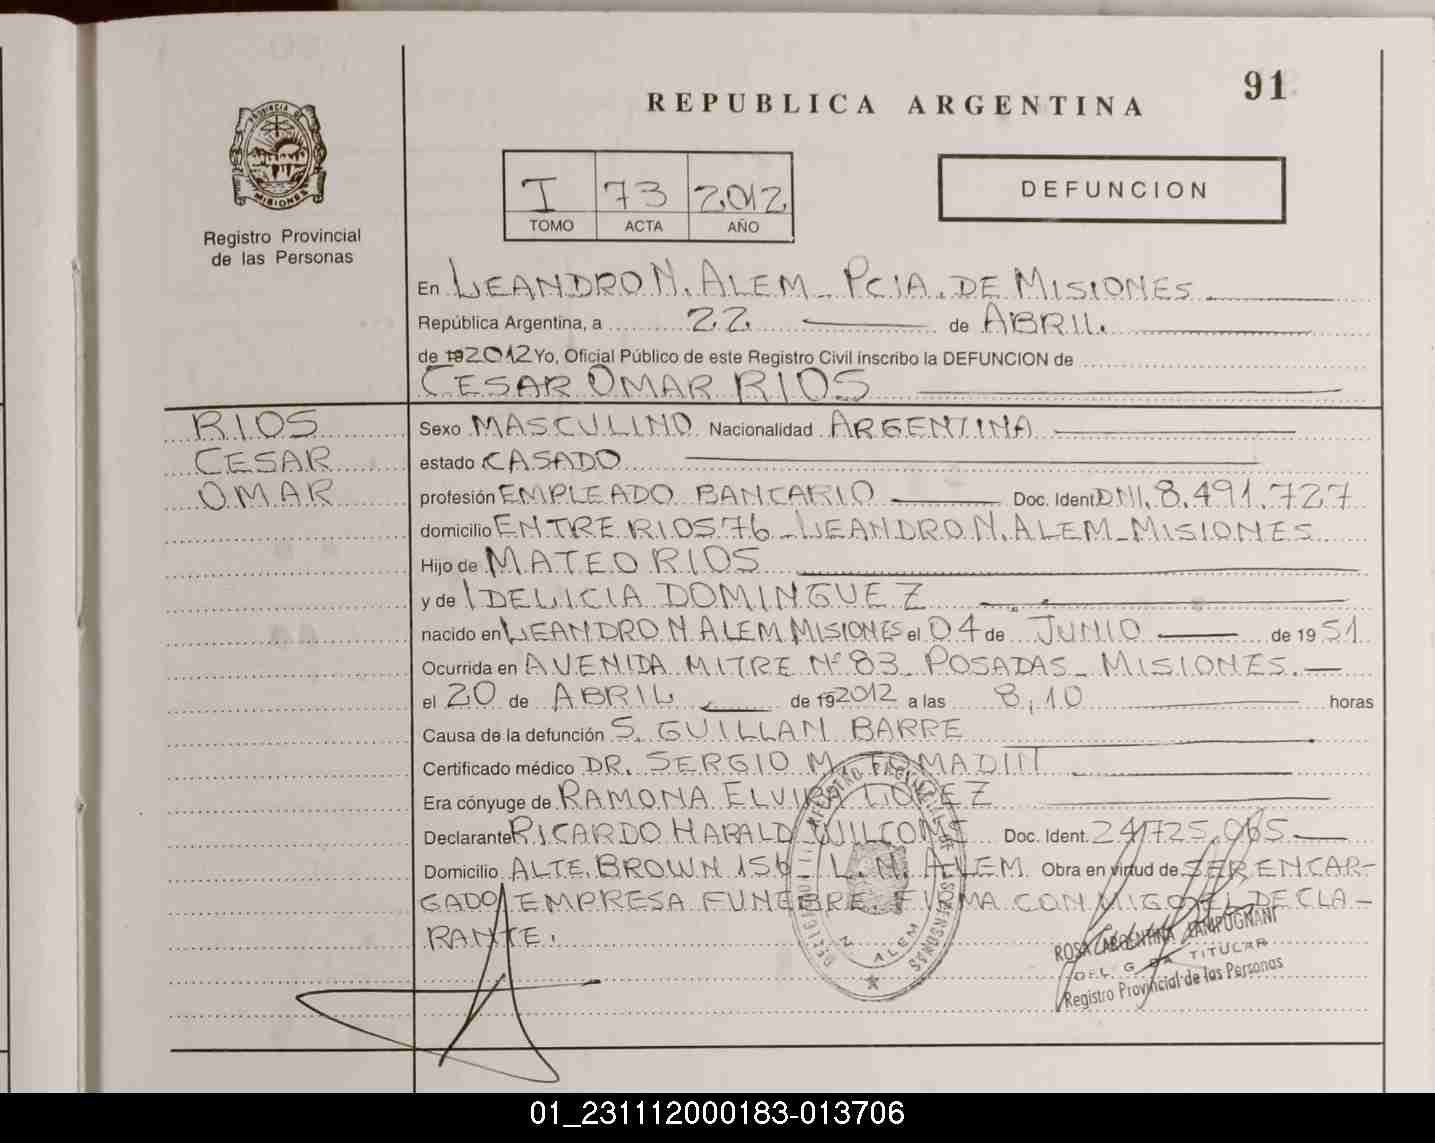 91
REPUBLICA ARGENTINA
PROVINCIA DE
MISIONES
Registro Provincial
de las Personas
I 73 2012
TOMO ACTA AÑO
DEFUNCION
En LEANDRO N. ALEM - PCIA. DE MISIONES
República Argentina, a 22 de ABRIL.
de 19 2012 Yo, Oficial Público de este Registro Civil inscribo la DEFUNCION de
CESAR OMAR RIOS
RIOS
CESAR
OMAR
Sexo MASCULINO Nacionalidad ARGENTINA
estado CASADO
profesión EMPLEADO BANCARIO Doc. Ident. DNI. 8.491.727
domicilio ENTRE RIOS 76 - LEANDRO N. ALEM - MISIONES
Hijo de MATEO RIOS
y de IDELICIA DOMINGUEZ
nacido en LEANDRO N. ALEM MISIONES el 04 de JUNIO de 19 51
Ocurrida en AVENIDA MITRE Nº 83 - POSADAS - MISIONES.
el 20 de ABRIL de 19 2012 a las 8,10 horas
Causa de la defunción S. GUILLAN BARRE
Certificado médico DR. SERGIO M. TOMADIN
Era cónyuge de RAMONA ELVIRA LOPEZ
Declarante RICARDO HARALD Doc. Ident. 24.725.065
Domicilio ALTE. BROWN 156 - L. N. ALEM. Obra en virtud de SER ENCAR-
GADO EMPRESA FUNEBRE. FIRMA CON MIGO EL DECLA-
RANTE.
REGISTRO PROVINCIAL DE LAS PERSONAS
N. ALEM
ROSA ARGENTINA ZAMPUGNANI
TITULAR
Registro Provincial de las Personas
01_231112000183-013706